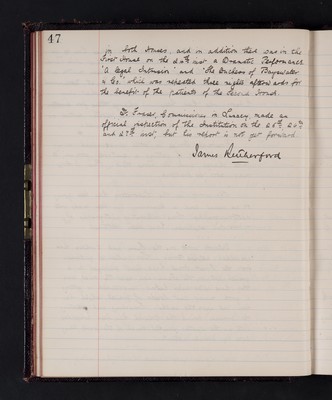 47
in both Houses, and in addition there was in the
First House on the 20th inst a Dramatic Performance
"A Legal Intrusion" and "The Duchess of Bayswater
& Co." which was repeated three nights afterwards for
the benefit of the Patients of the Second House.
Dr. Fraser, Commissioner in Lunacy, made an
official inspection of the Institution on the 25th, 26th
and 27th inst, but his report is not yet forward.
James Rutherford